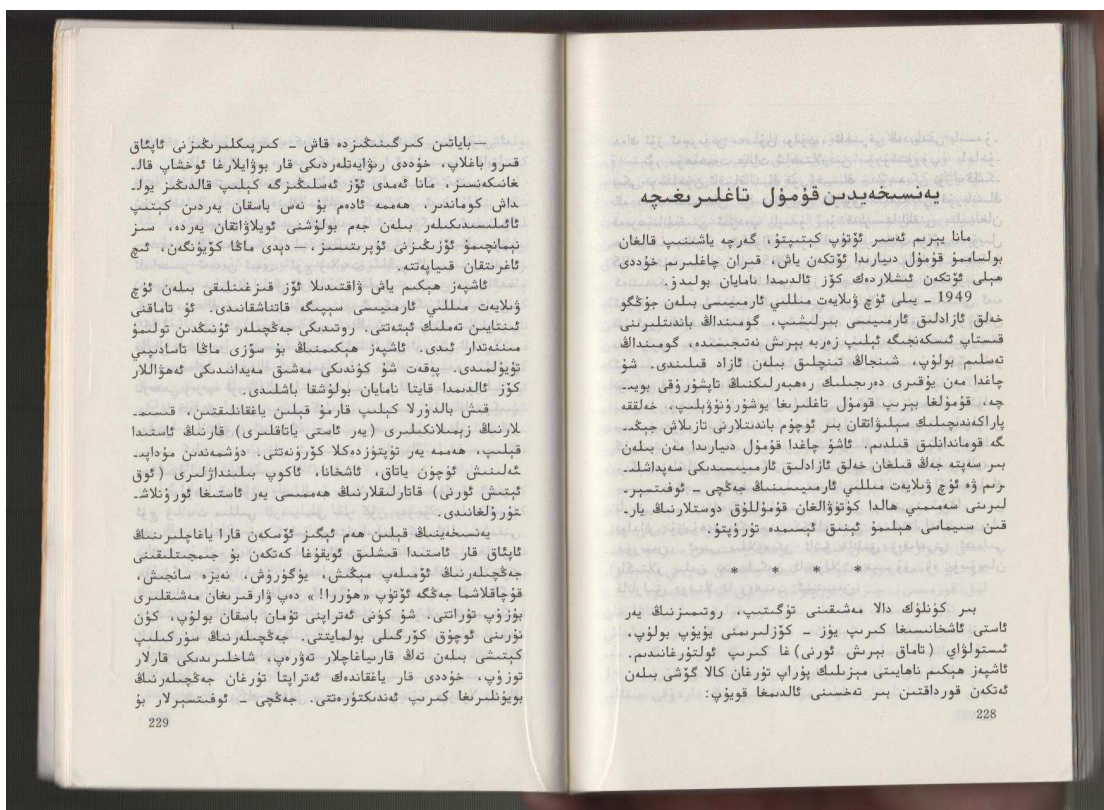 يەنسىخەيدىن قۇمۇل تاغلىرىغىچە
مانا يېرىم ئەسىر ئۆتۈپ كېتىپتۇ، گەرچە ياشىنىپ قالغان
بولساممۇ قۇمۇل دىيارىدا ئۆتكەن ياش، قىران چاغلىرىم خۇددى
ھېلى ئۆتكەن ئىشلاردەك كۆز ئالدىمدا نامايان بولىدۇ.
1949 ـ يىلى ئۈچ ۋىلايەت مىللىي ئارمىيىسى بىلەن جۇڭگو
خەلق ئازادلىق ئارمىيىسى بىرلىشىپ، گومىنداڭ باندىتلىرىنى
قىستاپ ئىسكەنجىگە ئېلىپ زەربە بېرىش نەتىجىسىدە، گومىنداڭ
تەسلىم بولۇپ، شىنجاڭ تىنچلىق بىلەن ئازاد قىلىندى. شۇ
چاغدا مەن يۇقىرى دەرىجىلىك رەھبەرلىكنىڭ تاپشۇرۇقى بويىـ
چە، قۇمۇلغا بېرىپ قومۇل تاغلىرىغا يوشۇرۇنۇۋېلىپ، خەلققە
پاراكەندىچىلىك سېلىۋاتقان بىر ئوچۇم باندىتلارنى تازىلاش جېڭىـ
گە قوماندانلىق قىلدىم. ئاشۇ چاغدا قۇمۇل دىيارىدا مەن بىلەن
بىر سەپتە جەڭ قىلغان خەلق ئازادلىق ئارمىيىسىدىكى سەپداشلىـ
رىم ۋە ئۈچ ۋىلايەت مىللىي ئارمىيىسىنىڭ جەڭچى ـ ئوفىتسېرـ
لىرىنى سەمىمىي ھالدا كۈتۈۋالغان قۇمۇللۇق دوستلارنىڭ يارـ
قىن سىيماسى ھېلىمۇ ئېنىق ئېسىمدە تۇرۇپتۇ.
* * * *
بىر كۈنلۈك دالا مەشىقىنى تۈگىتىپ، روتىمىزنىڭ يەر
ئاستى ئاشخانىسىغا كىرىپ يۈز ـ كۆزلىرىمنى يۇيۇپ بولۇپ،
ئىستولۋاي (تاماق يېرىش ئورنى) غا كىرىپ ئولتۇرغانىدىم.
ئاشپەز ھېكىم ناھايىتى مېزىلىك پۇراپ تۇرغان كالا گۆشى بىلەن
ئەتكەن قورداقتىن بىر تەخسىنى ئالدىمغا قويۇپ:
228
— باياتىن كىرگىنىڭىزدە قاش ـ كىرپىكلىرىڭىزنى ئاپئاق
قىرو باغلاپ، خۇددى رىۋايەتلەردىكى قار بوۋايلارغا ئوخشاپ قالـ
غانىكەنسىز، مانا ئەمدى ئۆز ئەسلىڭىزگە كېلىپ قالدىڭىز يولـ
داش كوماندىر، ھەممە ئادەم بۇ نەس باسقان يەردىن كېتىپ
ئائىلىسىدىكىلەر بىلەن جەم بولۇشنى ئويلاۋاتقان يەردە، سىز
نېمانچىمۇ ئۆزىڭىزنى ئۇپرىتىسىز، — دېدى ماڭا كۆيۈنگەن، ئىچ
ئاغرىتقان قىياپەتتە.
ئاشپەز ھېكىم ياش ۋاقتىدىلا ئۆز قىزغىنلىقى بىلەن ئۈچ
ۋىلايەت مىللىي ئارمىيىسى سېپىگە قاتناشقانىدى. ئۇ تاماقنى
ئىنتايىن تەملىك ئېتەتتى. روتىدىكى جەڭچىلەر ئۇنىڭدىن تولىمۇ
مىننەتدار ئىدى. ئاشپەز ھېكىمنىڭ بۇ سۆزى ماڭا تاسادىپىي
تۇيۇلمىدى. پەقەت شۇ كۈندىكى مەشىق مەيدانىدىكى ئەھۋاللار
كۆز ئالدىمدا قايتا نامايان بولۇشقا باشلىدى.
قىش بالدۇرلا كېلىپ قارمۇ قېلىن ياغقانلىقتىن، قىسىمـ
لارنىڭ زېمىلانكىلىرى (يەر ئاستى ياتاقلىرى) قارنىڭ ئاستىدا
قېلىپ، ھەممە يەر تۈپتۈزدەكلا كۆرۈنەتتى. دۈشمەندىن مۇداپىـ
ئەلىنىش ئۈچۈن ياتاق، ئاشخانا، ئاكوپ بىلىنداژلىرى (ئوق
ئېتىش ئورنى) قاتارلىقلارنىڭ ھەممىسى يەر ئاستىغا ئورۇنلاشـ
تۇرۇلغانىدى.
يەنسىخەينىڭ قېلىن ھەم ئېگىز ئۆسكەن قارا ياغاچلىرىنىڭ
ئاپئاق قار ئاستىدا قىشلىق ئۇيقۇغا كەتكەن بۇ جىمجىتلىقىنى
جەڭچىلەرنىڭ ئۆمىلەپ مېڭىش، يۈگۈرۈش، نەيزە سانجىش،
قۇچاقلاشما جەڭگە ئۆتۈپ «ھۇررا!» دەپ ۋارقىرىغان مەشىقلىرى
بۇزۇپ تۇراتتى. شۇ كۈنى ئەتراپنى تۇمان باسقان بولۇپ، كۈن
نۇرىنى ئوچۇق كۆرگىلى بولمايتتى. جەڭچىلەرنىڭ سۈركىلىپ
كېتىشى بىلەن تەڭ قارىياغاچلار تەۋرەپ، شاخلىرىدىكى قارلار
توزۇپ، خۇددى قار ياغقاندەك ئەتراپتا تۇرغان جەڭچىلەرنىڭ
بويۇنلىرىغا كىرىپ ئەندىكتۈرەتتى. جەڭچى ـ ئوفىتسېرلار بۇ
229